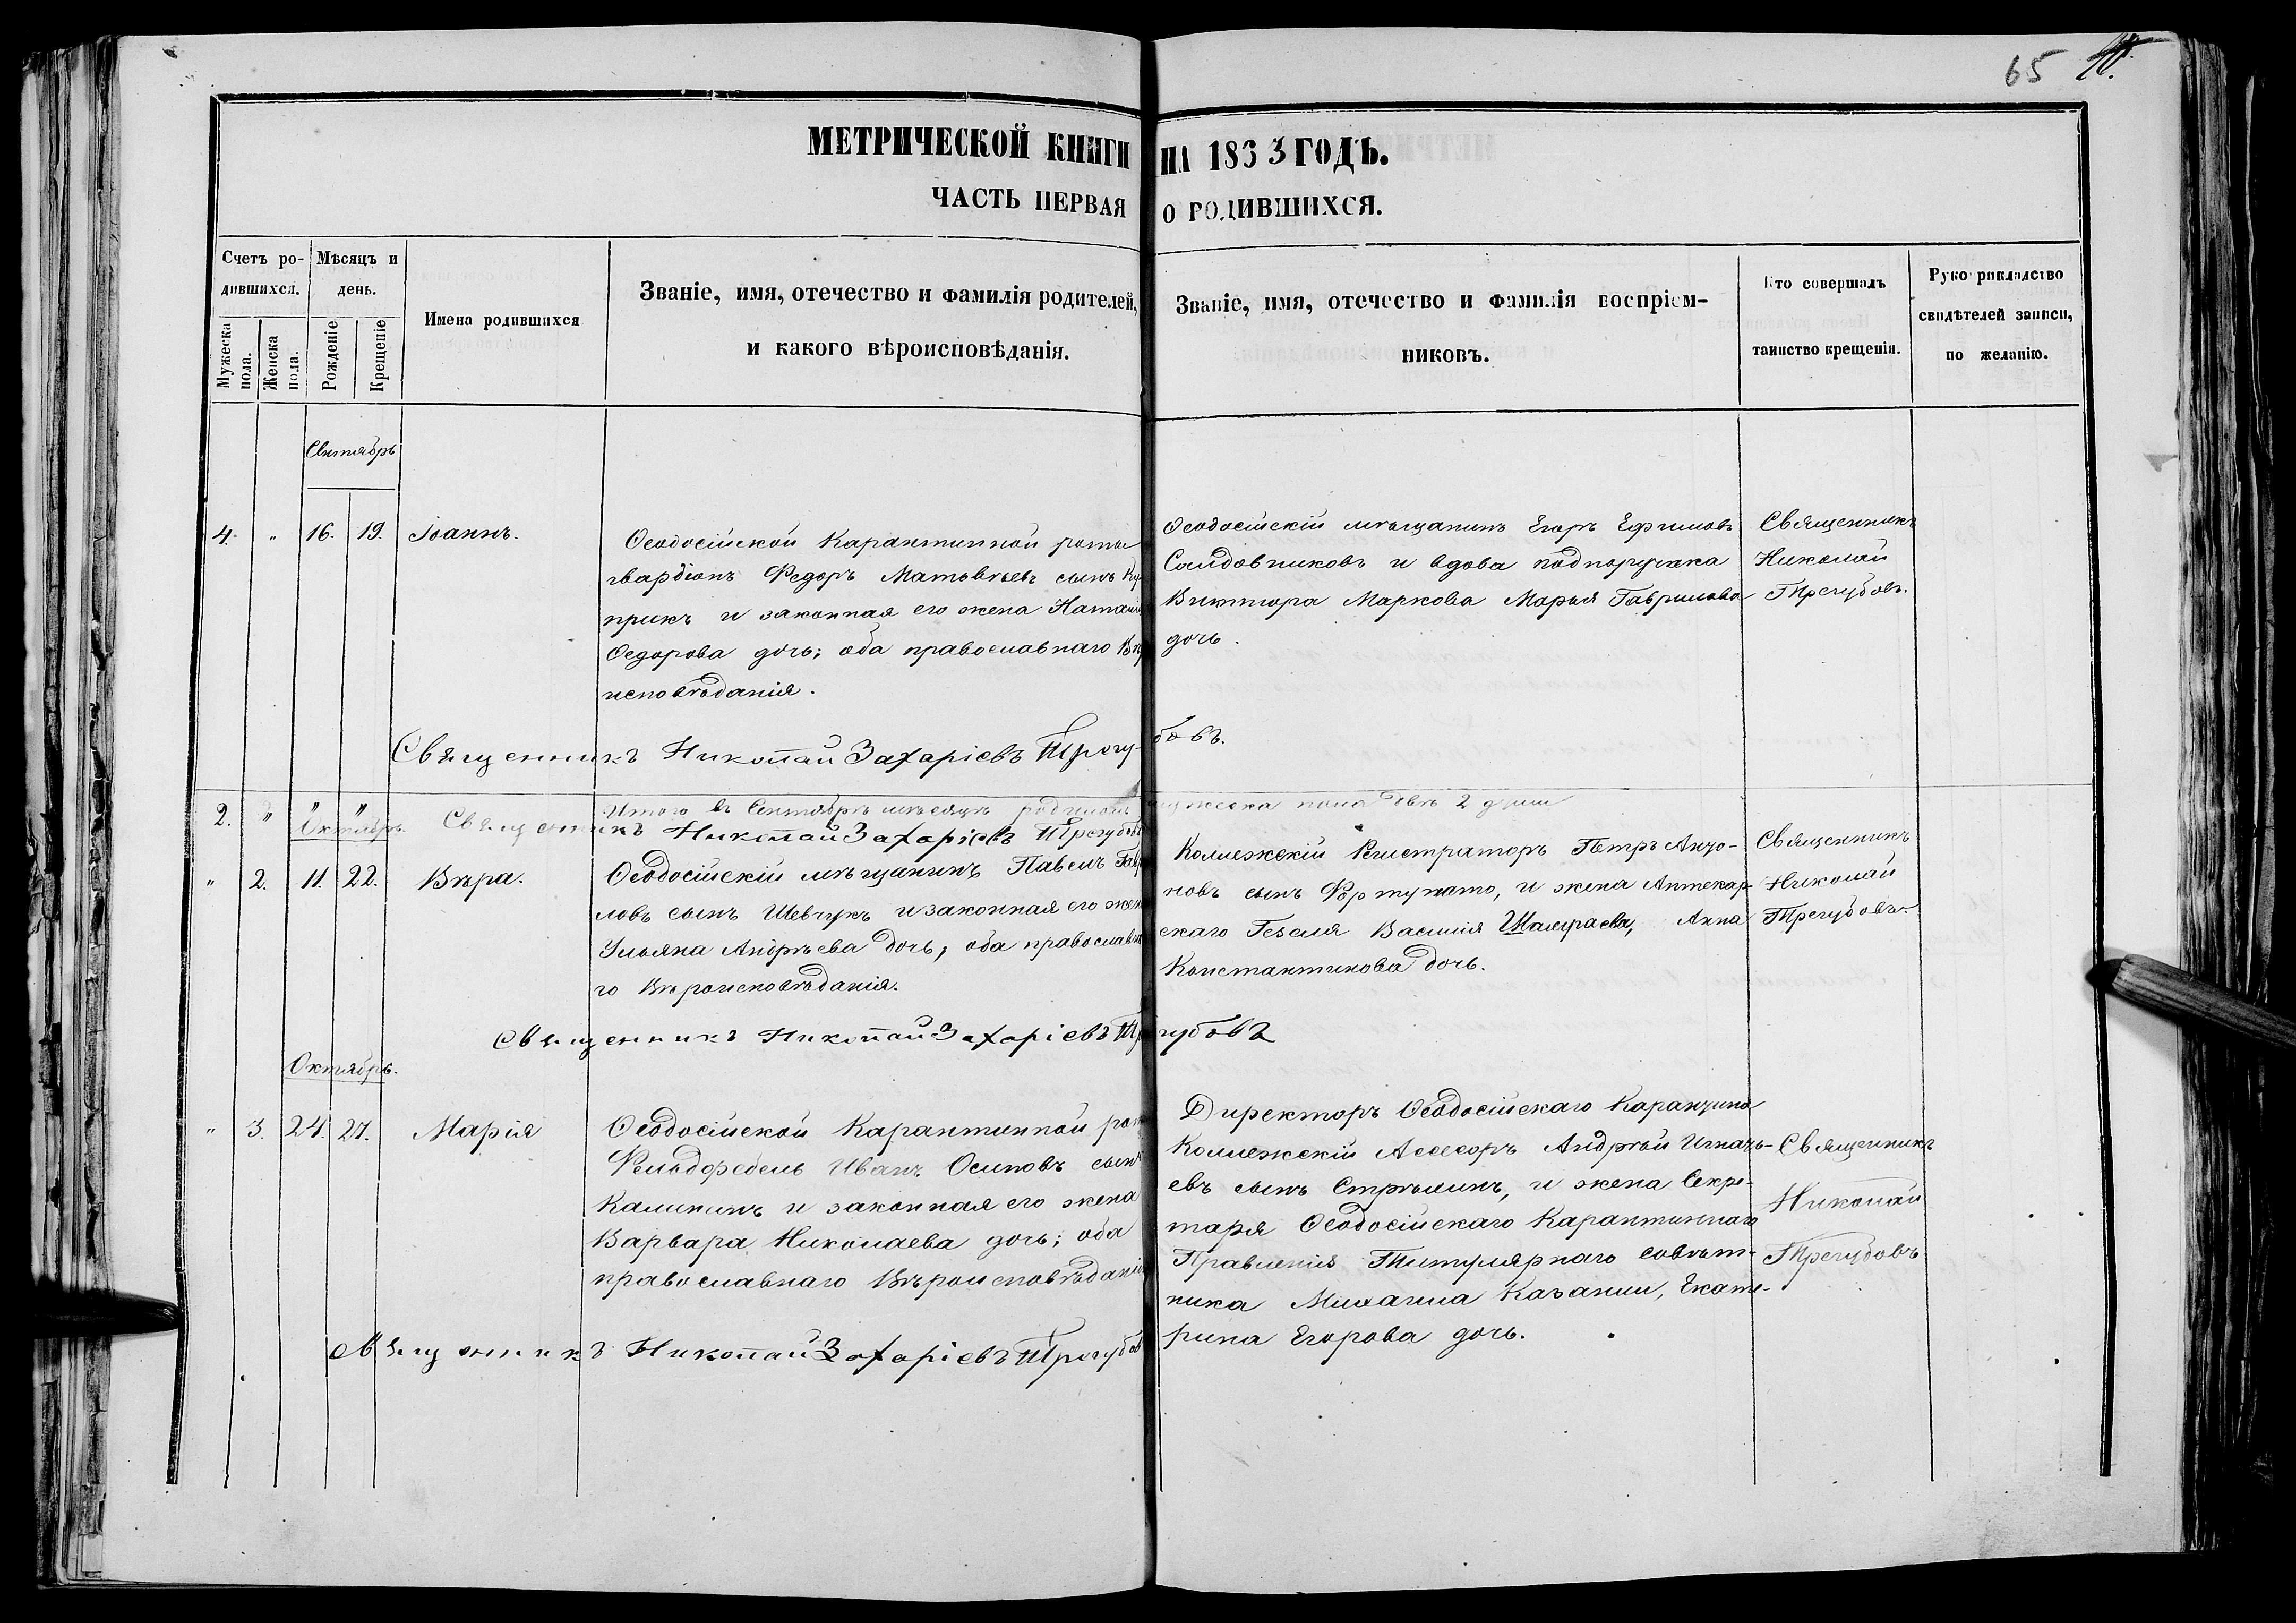 65
МЕТРИЧЕСКОЙ КНИГИ НА 1833 ГОДЪ.
ЧАСТЬ ПЕРВАЯ О РОДИВШИХСЯ.
Счетъ ро-
дившихся.
Мужеска пола.
Женска пола.
Мѣсяцъ и
день.
Рожденіе
Крещеніе
Имена родившихся
Званіе, имя, отечество и фамилія родителей,
и какого вѣроисповѣданія.
Званіе, имя, отечество и фамилія воспріем-
никовъ.
Кто совершалъ
таинство крещенія.
Рукоприкладство
свидѣтелей записи,
по желанію.
Сентябрь
4. " 16. 19. Іоаннъ.
Ѳеодосійской Карантинной роты
гвардіонъ Федоръ Матвѣевъ сынъ Ку-
прикъ и законная его жена Наталія
Ѳедорова дочь; оба православнаго Вѣро
исповѣданія.
Ѳеодосійскій мѣщанинъ Егоръ Ефимовъ
Сайдовниковъ и вдова подпоручика
Виктора Маркова Марья Гаврилова
дочь.
Священникъ
Николай
Трегубовъ.
Священникъ Николай Захаріевъ Трегу-бовъ.
2. " " " Итого въ Сентябрѣ мѣсяцѣ родилось мужеска пола двѣ 2 души
Священникъ Николай Захаріевъ Трегубовъ
Октябрь.
" 2. 11. 22. Вѣра.
Ѳеодосійскій мѣщанинъ Павелъ Гаври
ловъ сынъ Шевчукъ и законная его жена
Ульяна Андрѣева дочь; оба православна
го Вѣроисповѣданія.
Коллежскій Регистраторъ Петръ Анто-
новъ сынъ Фортунато, и жена Аптекар-
скаго Гезеля Василія Шамраева, Анна
Константинова дочь.
Священникъ
Николай
Трегубовъ.
Священникъ Николай Захаріевъ Трегубовъ
Октябрь.
" 3. 24. 27. Марія
Ѳеодосійской Карантинной роты
Фельдфебель Иванъ Осиповъ сынъ
Калининъ и законная его жена
Варвара Николаева дочь; оба
православнаго Вѣроисповѣданія
Директоръ Ѳеодосійскаго Карантина
Коллежскій Ассесоръ Андрѣй Игнать-
евъ сынъ Стрѣлинъ, и жена Секре-
таря Ѳеодосійскаго Карантиннаго
Правленія Титулярнаго совѣт-
ника Михаила Качании, Екате-
рина Егорова дочь.
Священникъ
Николай
Трегубовъ.
Священникъ Николай Захаріевъ Трегубовъ